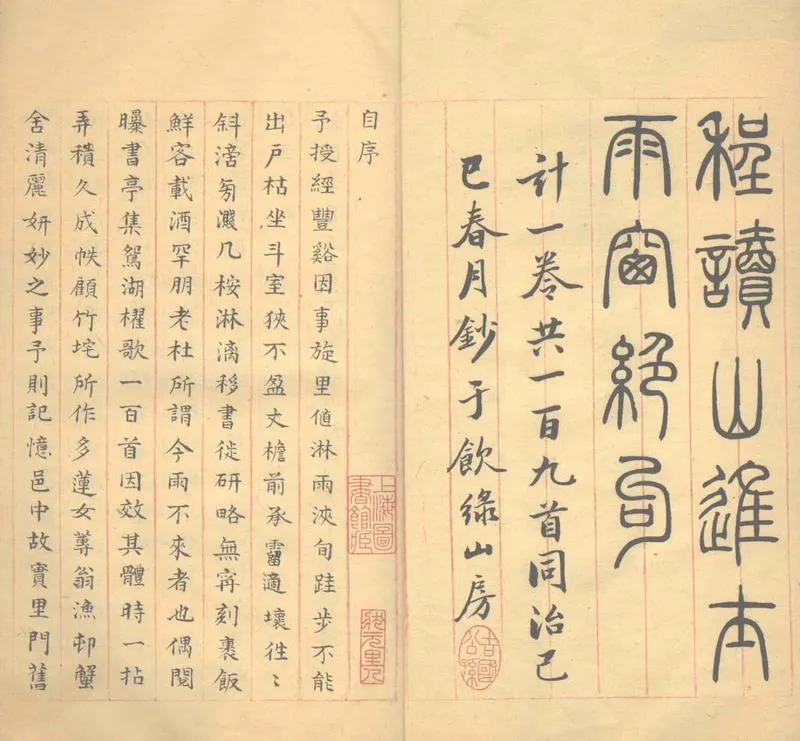 程讀山進本
雨窗絕句
計一卷共一百九首同治己
巳春月鈔于飲綠山房
自序
予授經豐谿因事旋里値淋雨浹旬跬步不能
出戶枯坐斗室狹不盈丈檐前承霤適壞徃〻
斜滂濺几桉淋漓移書徙硏略無寗刻裹飯
鮮客載酒罕朋老杜所謂今雨不來者也偶閱
曝書亭集鴛湖櫂歌一百首因效其體時一拈
弄積久成帙顧竹垞所作多蓮女蓴翁漁邨蟹
舍清麗姸妙之事予則記憶邑中故實里門舊
上海圖
書館藏